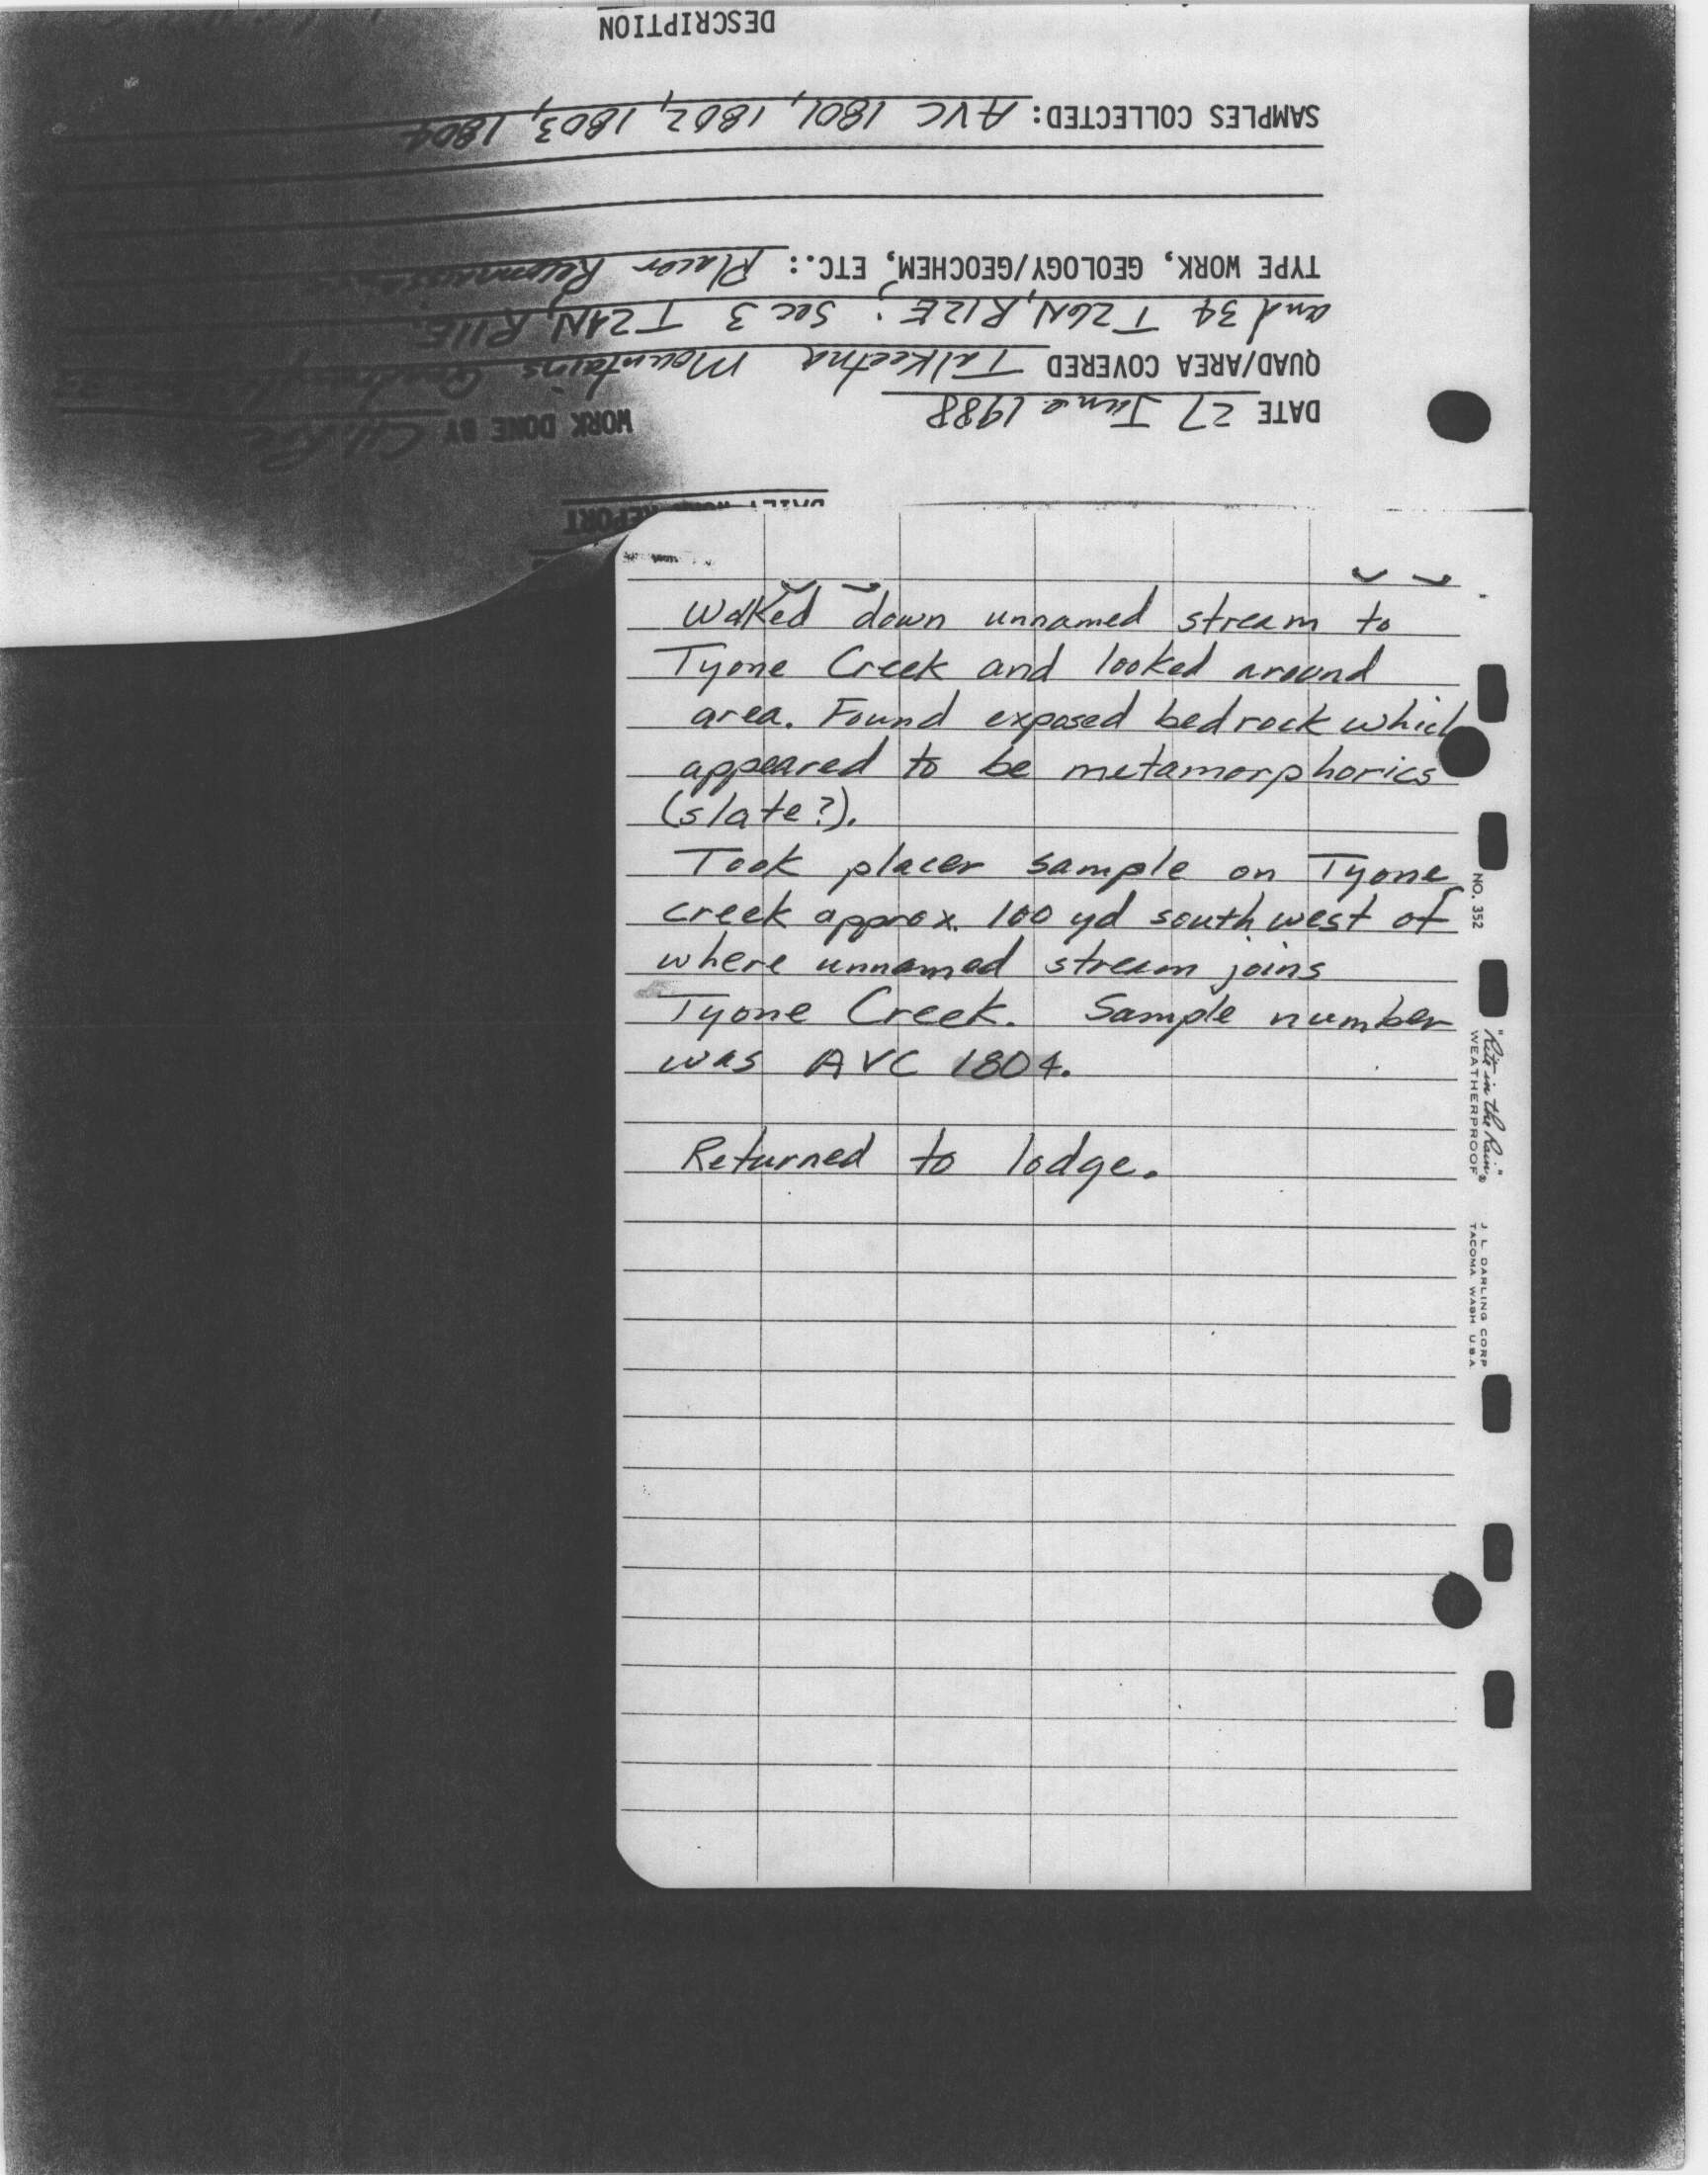 DAILY WORK REPORT
DATE 27 June 1988
WORK DONE BY
QUAD/AREA COVERED Talkeetna Mountains
and 34 T26N, R12E; Sec 3 T24N, R11E.
TYPE WORK, GEOLOGY/GEOCHEM, ETC.: Placer Reconnaissance
SAMPLES COLLECTED: AVC 1801, 1802, 1803, 1804
DESCRIPTION
Walked down unnamed stream to
Tyone Creek and looked around
area. Found exposed bedrock which
appeared to be metamorphorics
(slate?).
Took placer sample on Tyone
creek approx. 100 yd southwest of
where unnamed stream joins
Tyone Creek. Sample number
was AVC 1804.
Returned to lodge.
NO. 352
"Rite in the Rain"®
WEATHERPROOF
J. L. DARLING CORP
TACOMA WASH U.S.A